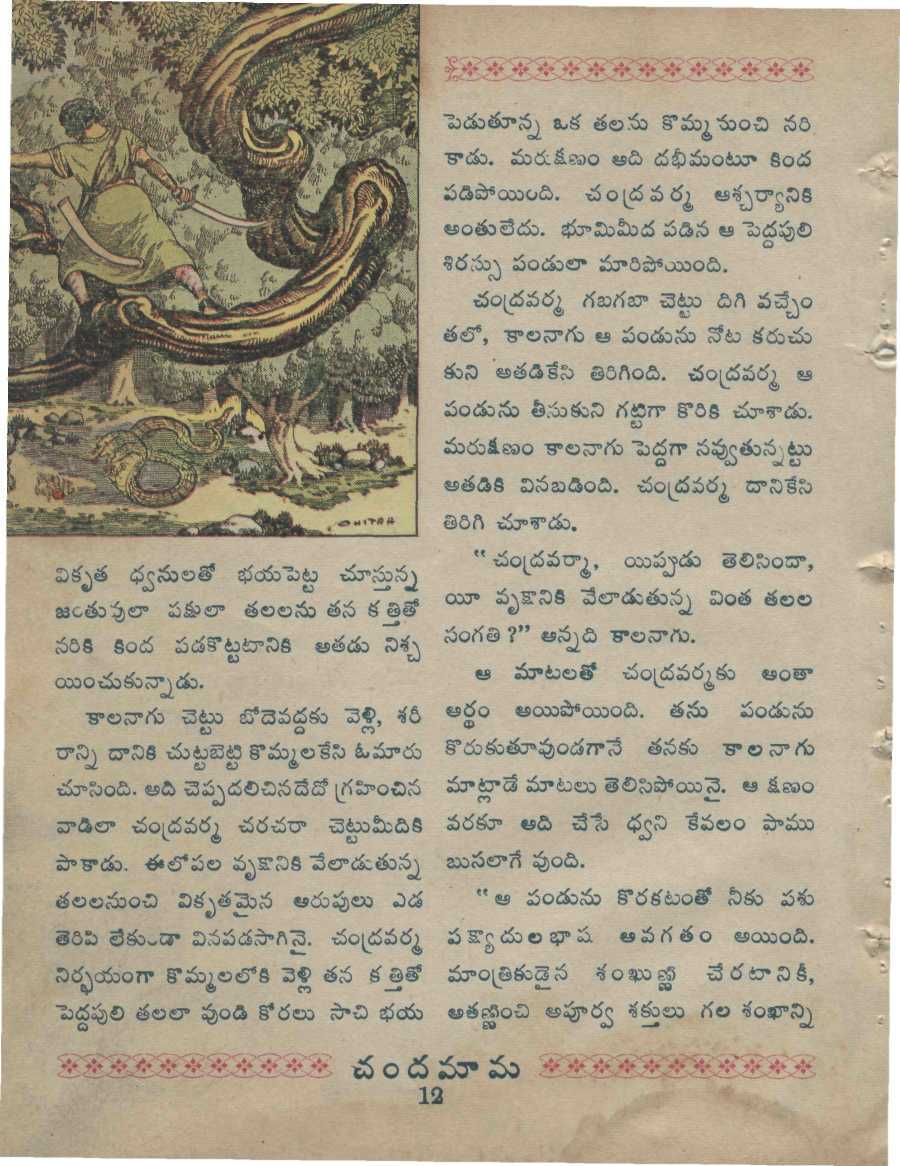 CHITRA
వికృత ధ్వనులతో భయపెట్ట చూస్తున్న
జంతువులా పక్షులా తలలను తన కత్తితో
నరికి కింద పడకొట్టటానికి అతడు నిశ్చ
యించుకున్నాడు.
కాలనాగు చెట్టు బోదెవద్దకు వెళ్లి, శరీ
రాన్ని దానికి చుట్టబెట్టి కొమ్మలకేసి ఓమారు
చూసింది. అది చెప్పదలిచినదేదో గ్రహించిన
వాడిలా చంద్రవర్మ చరచరా చెట్టుమీదికి
పాకాడు. ఈలోపల వృక్షానికి వేలాడుతున్న
తలలనుంచి వికృతమైన ఆరుపులు ఎడ
తెరిపి లేకుండా వినపడసాగినై. చంద్రవర్మ
నిర్భయంగా కొమ్మలలోకి వెళ్లి తన కత్తితో
పెద్దపులి తలలా వుండి కోరలు సాచి భయ
పెడుతూన్న ఒక తలను కొమ్మనుంచి నరి
కాడు. మరుక్షణం అది దభీమంటూ కింద
పడిపోయింది. చంద్రవర్మ ఆశ్చర్యానికి
అంతులేదు. భూమిమీద పడిన ఆ పెద్దపులి
శిరస్సు పండులా మారిపోయింది.
చంద్రవర్మ గబగబా చెట్టు దిగి వచ్చేం
తలో, కాలనాగు ఆ పండును నోట కరుచు
కుని అతడికేసి తిరిగింది. చంద్రవర్మ ఆ
పండును తీసుకుని గట్టిగా కొరికి చూశాడు.
మరుక్షణం కాలనాగు పెద్దగా నవ్వుతున్నట్టు
అతడికి వినబడింది. చంద్రవర్మ దానికేసి
తిరిగి చూశాడు.
“చంద్రవర్మా, యిప్పుడు తెలిసిందా,
యీ వృక్షానికి వేలాడుతున్న వింత తలల
సంగతి?” అన్నది కాలనాగు.
ఆ మాటలతో చంద్రవర్మకు అంతా
అర్థం అయిపోయింది. తను పండును
కొరుకుతూవుండగానే తనకు కాలనాగు
మాట్లాడే మాటలు తెలిసిపోయినై. ఆ క్షణం
వరకూ అది చేసే ధ్వని కేవలం పాము
బుసలాగే వుంది.
“ఆ పండును కొరకటంతో నీకు పశు
పక్ష్యాదుల భాష అవగతం అయింది.
మాంత్రికుడైన శంఖుణ్ణి చేరటానికీ,
అతణ్ణించి అపూర్వ శక్తులు గల శంఖాన్ని
చందమామ
12